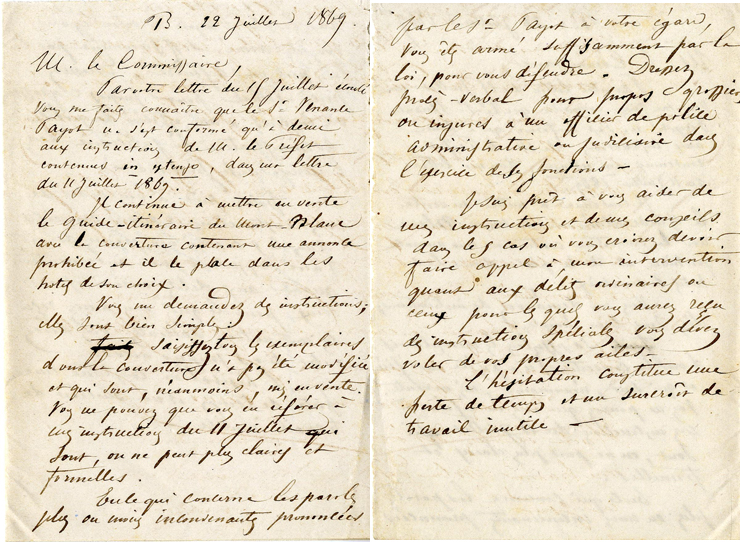 B. 22 Juillet 1869.
M. le Commissaire,
Par votre lettre du 15 Juillet écoulé
vous me faites connaître que le Sr Venance
Payot ne s'est conformé qu'à demi
aux instructions de M. le Préfet
contenues in extenso, dans ma lettre
du 11 Juillet 1869.
Il continue à mettre en vente
le Guide-itinéraire du Mont-Blanc
avec la couverture contenant une annonce
prohibée et il le place dans les
hotels de son choix.
Vous me demandez des instructions;
elles sont bien simples:
saisissez tous les exemplaires
dont la couverture n'a pas été modifiée
et qui sont, néanmoins, mis en vente.
Vous ne pouvez que vous en référer à
mes instructions du 11 Juillet qui
sont, on ne peut plus claires et
formelles.
En ce qui concerne les paroles
plus ou moins inconvenantes prononcées
par le Sr Payot à votre égard,
vous êtes armé suffisamment par la
loi, pour vous défendre. Dressez
procès-verbal pour propos grossiers
ou injures à un officier de police
administrative ou judiciaire dans
l'exercice de ses fonctions -
Je suis prêt à vous aider de
mes instructions et de mes conseils
dans les cas où vous croirez devoir
faire appel à mon intervention
quant aux délits ordinaires ou
ceux pour lesquels vous aurez reçu
des instructions spéciales vous devez
voler de vos propres ailes.
L'hésitation constitue une
perte de temps et un surcroît de
travail inutile -